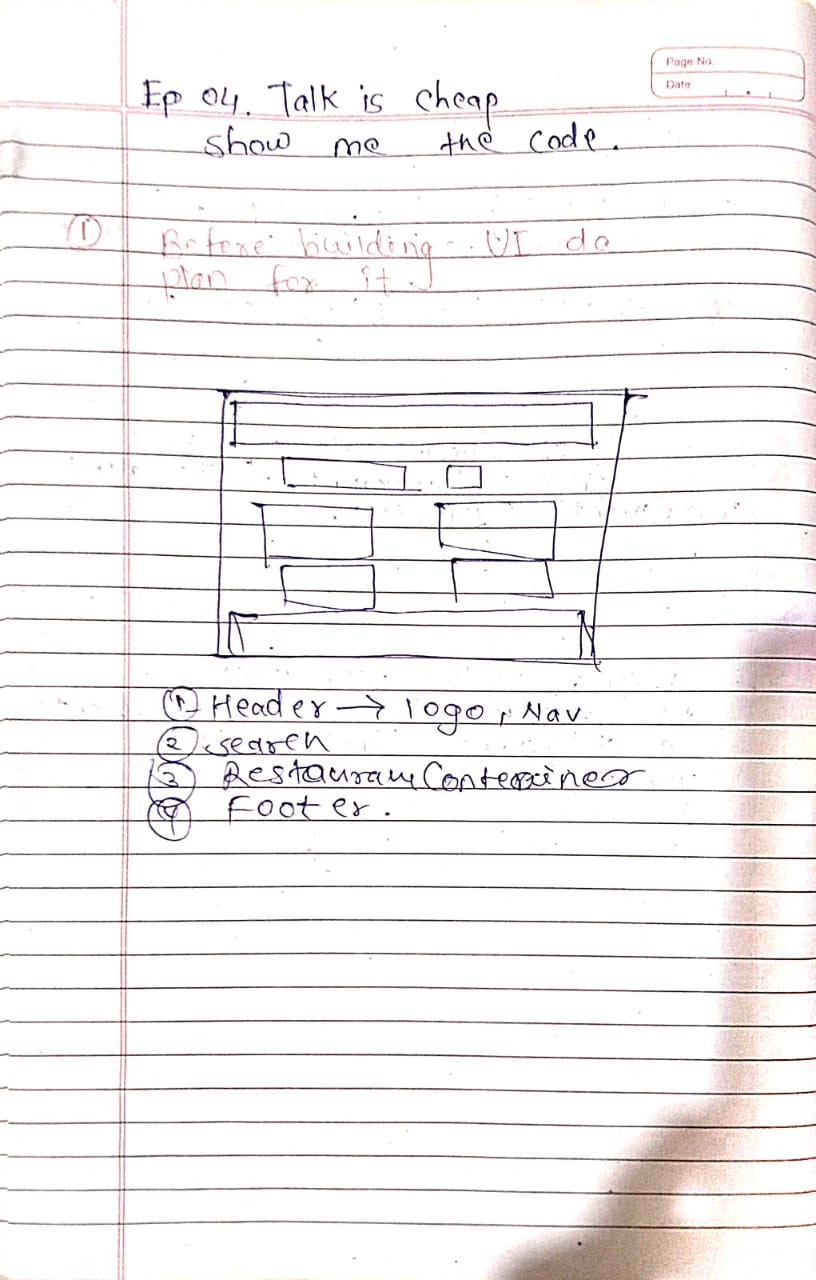 Page No.
Date
Ep 04. Talk is cheap
show me the code.
① Before building UI do
plan for it.
① Header → logo, Nav
② search
③ Restaurant Contexiner
④ Footer.